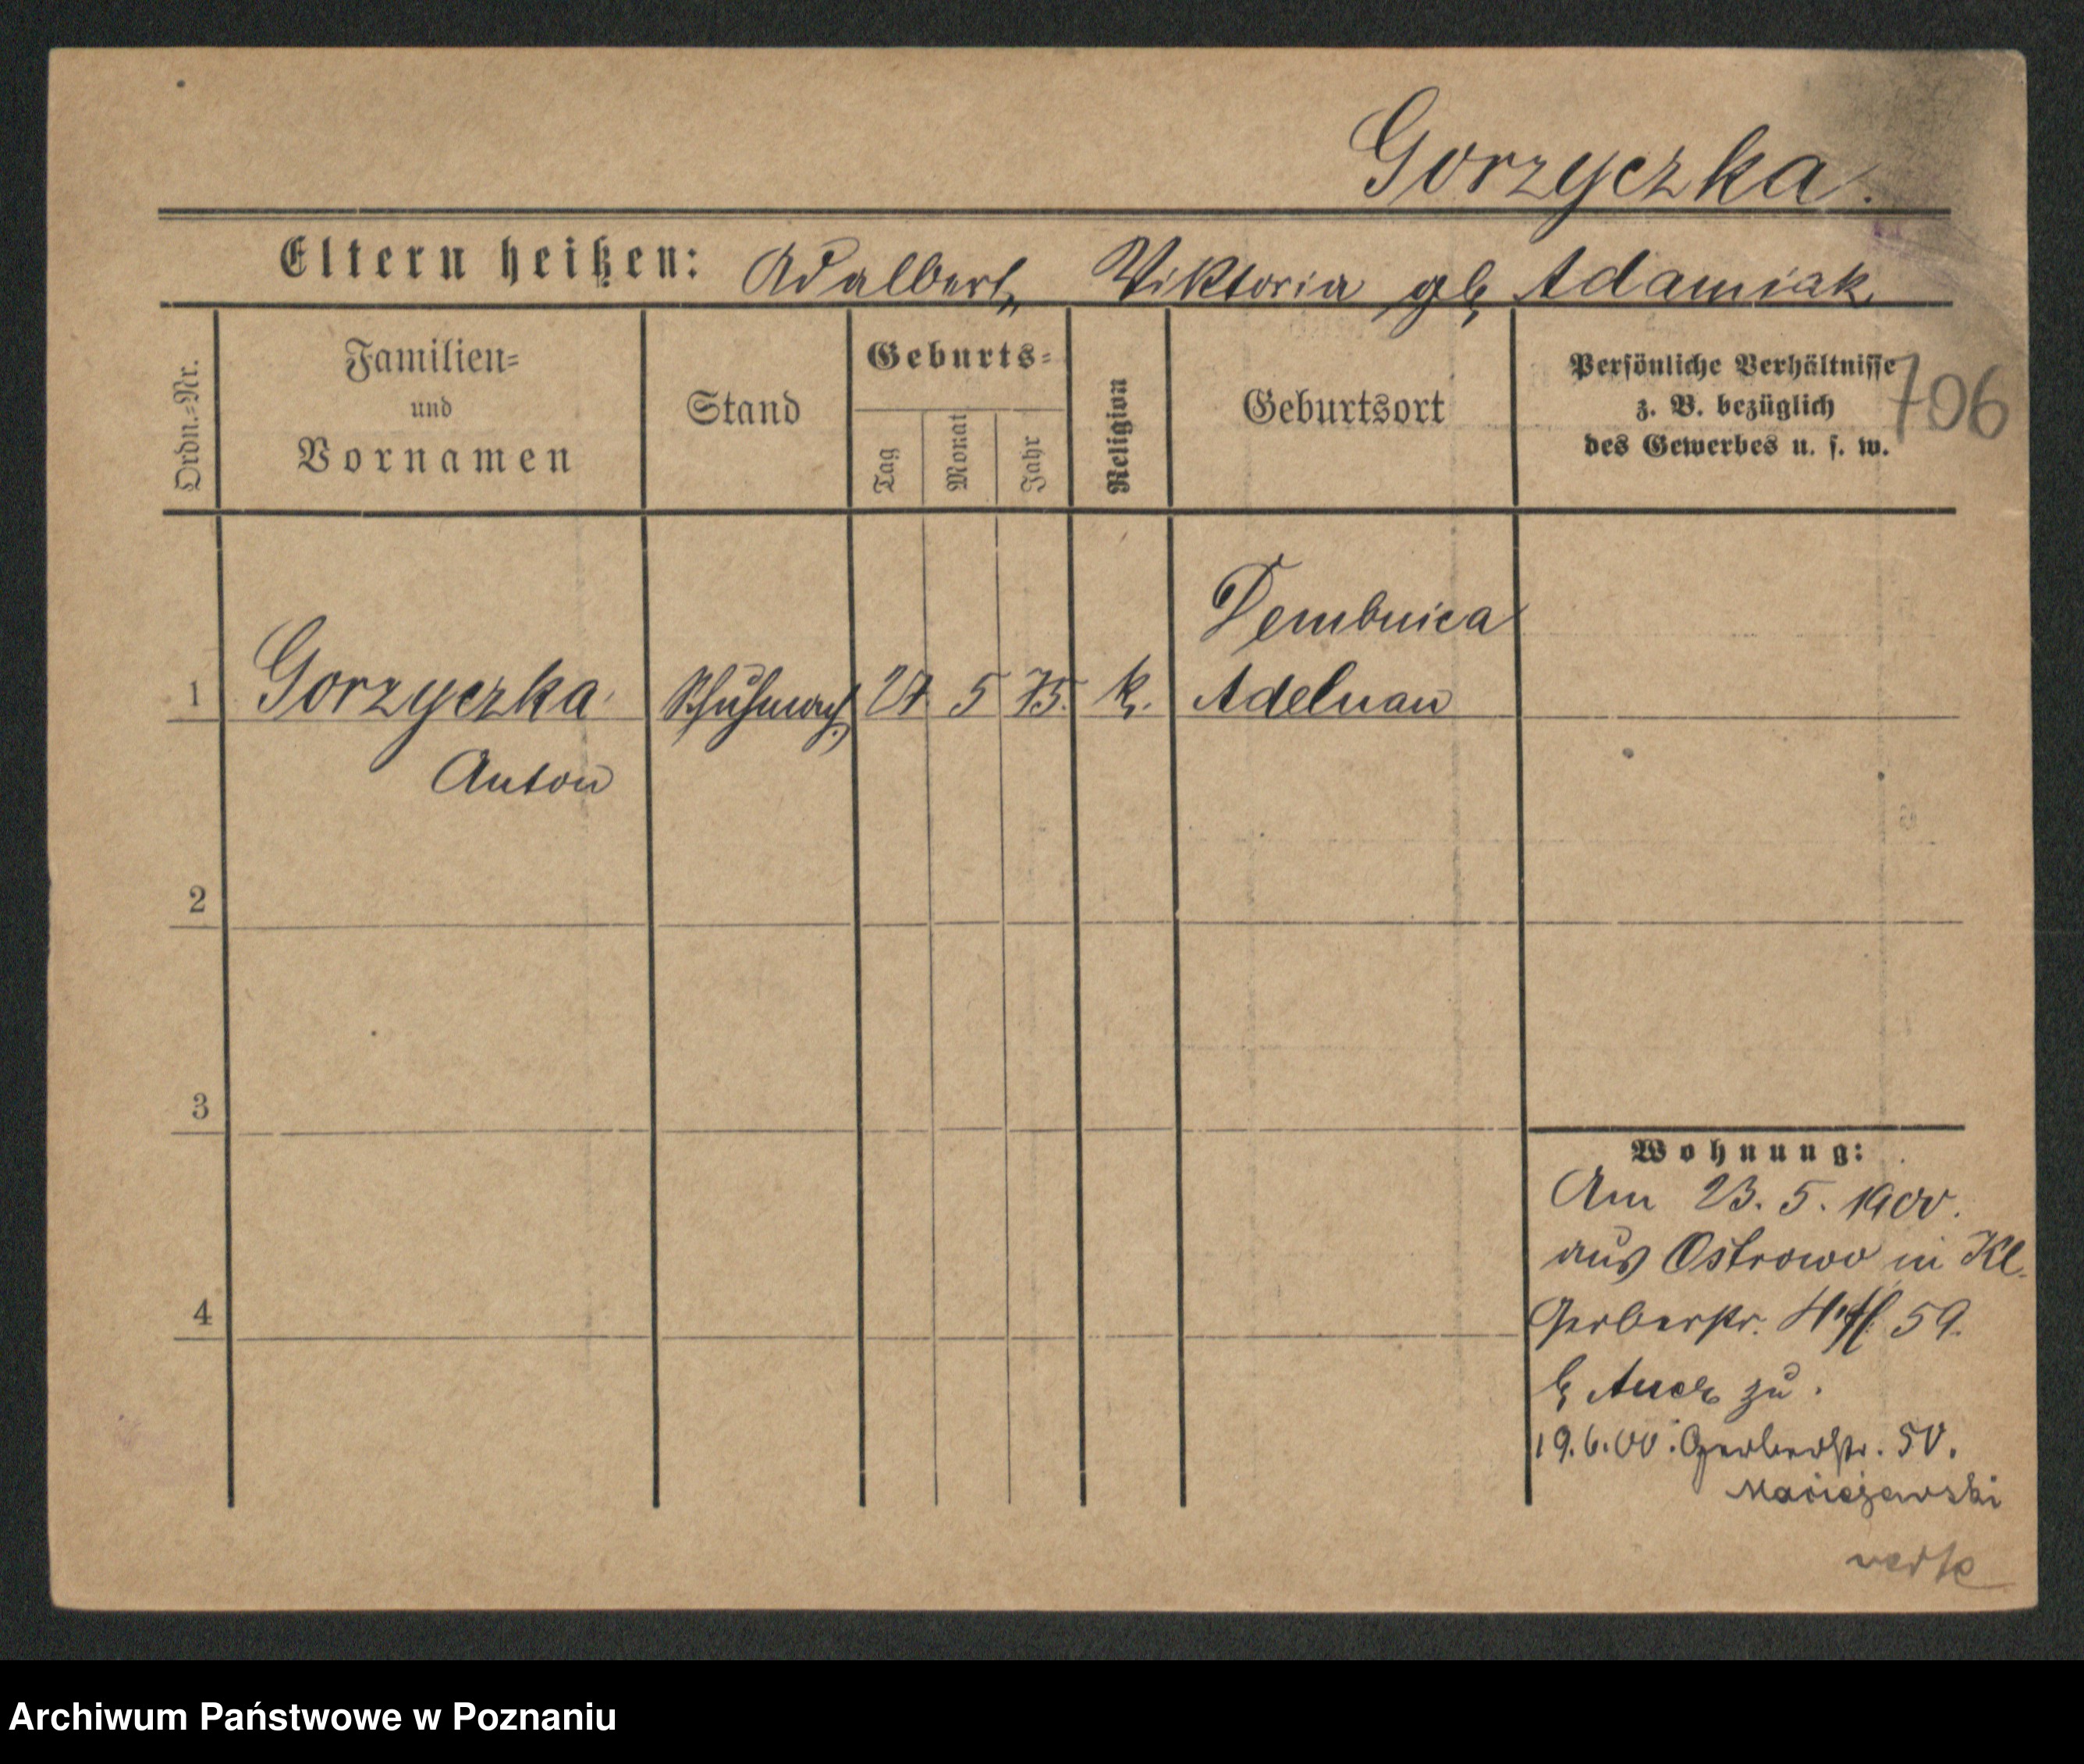 Gorzyczka.
Eltern heißen: Adalbert, Viktoria gb. Adamiak.
Ordn.=Nr.
Familien=
und
Vornamen
Stand
Geburts=
Tag
Monat
Jahr
Religion
Geburtsort
Persönliche Verhältnisse
z. B. bezüglich
des Gewerbes u. s. w.
706
1
Gorzyczka
Anton
Schuhmach.
27. 5 75.
k.
Dembnica
Adelnau
2
3
4
Wohnung:
Am 23. 5. 1900.
aus Ostrowo in Kl.
Gerberstr. 59.
b. zu.
19.6.00. Gerberstr. 50.
Maciejewski